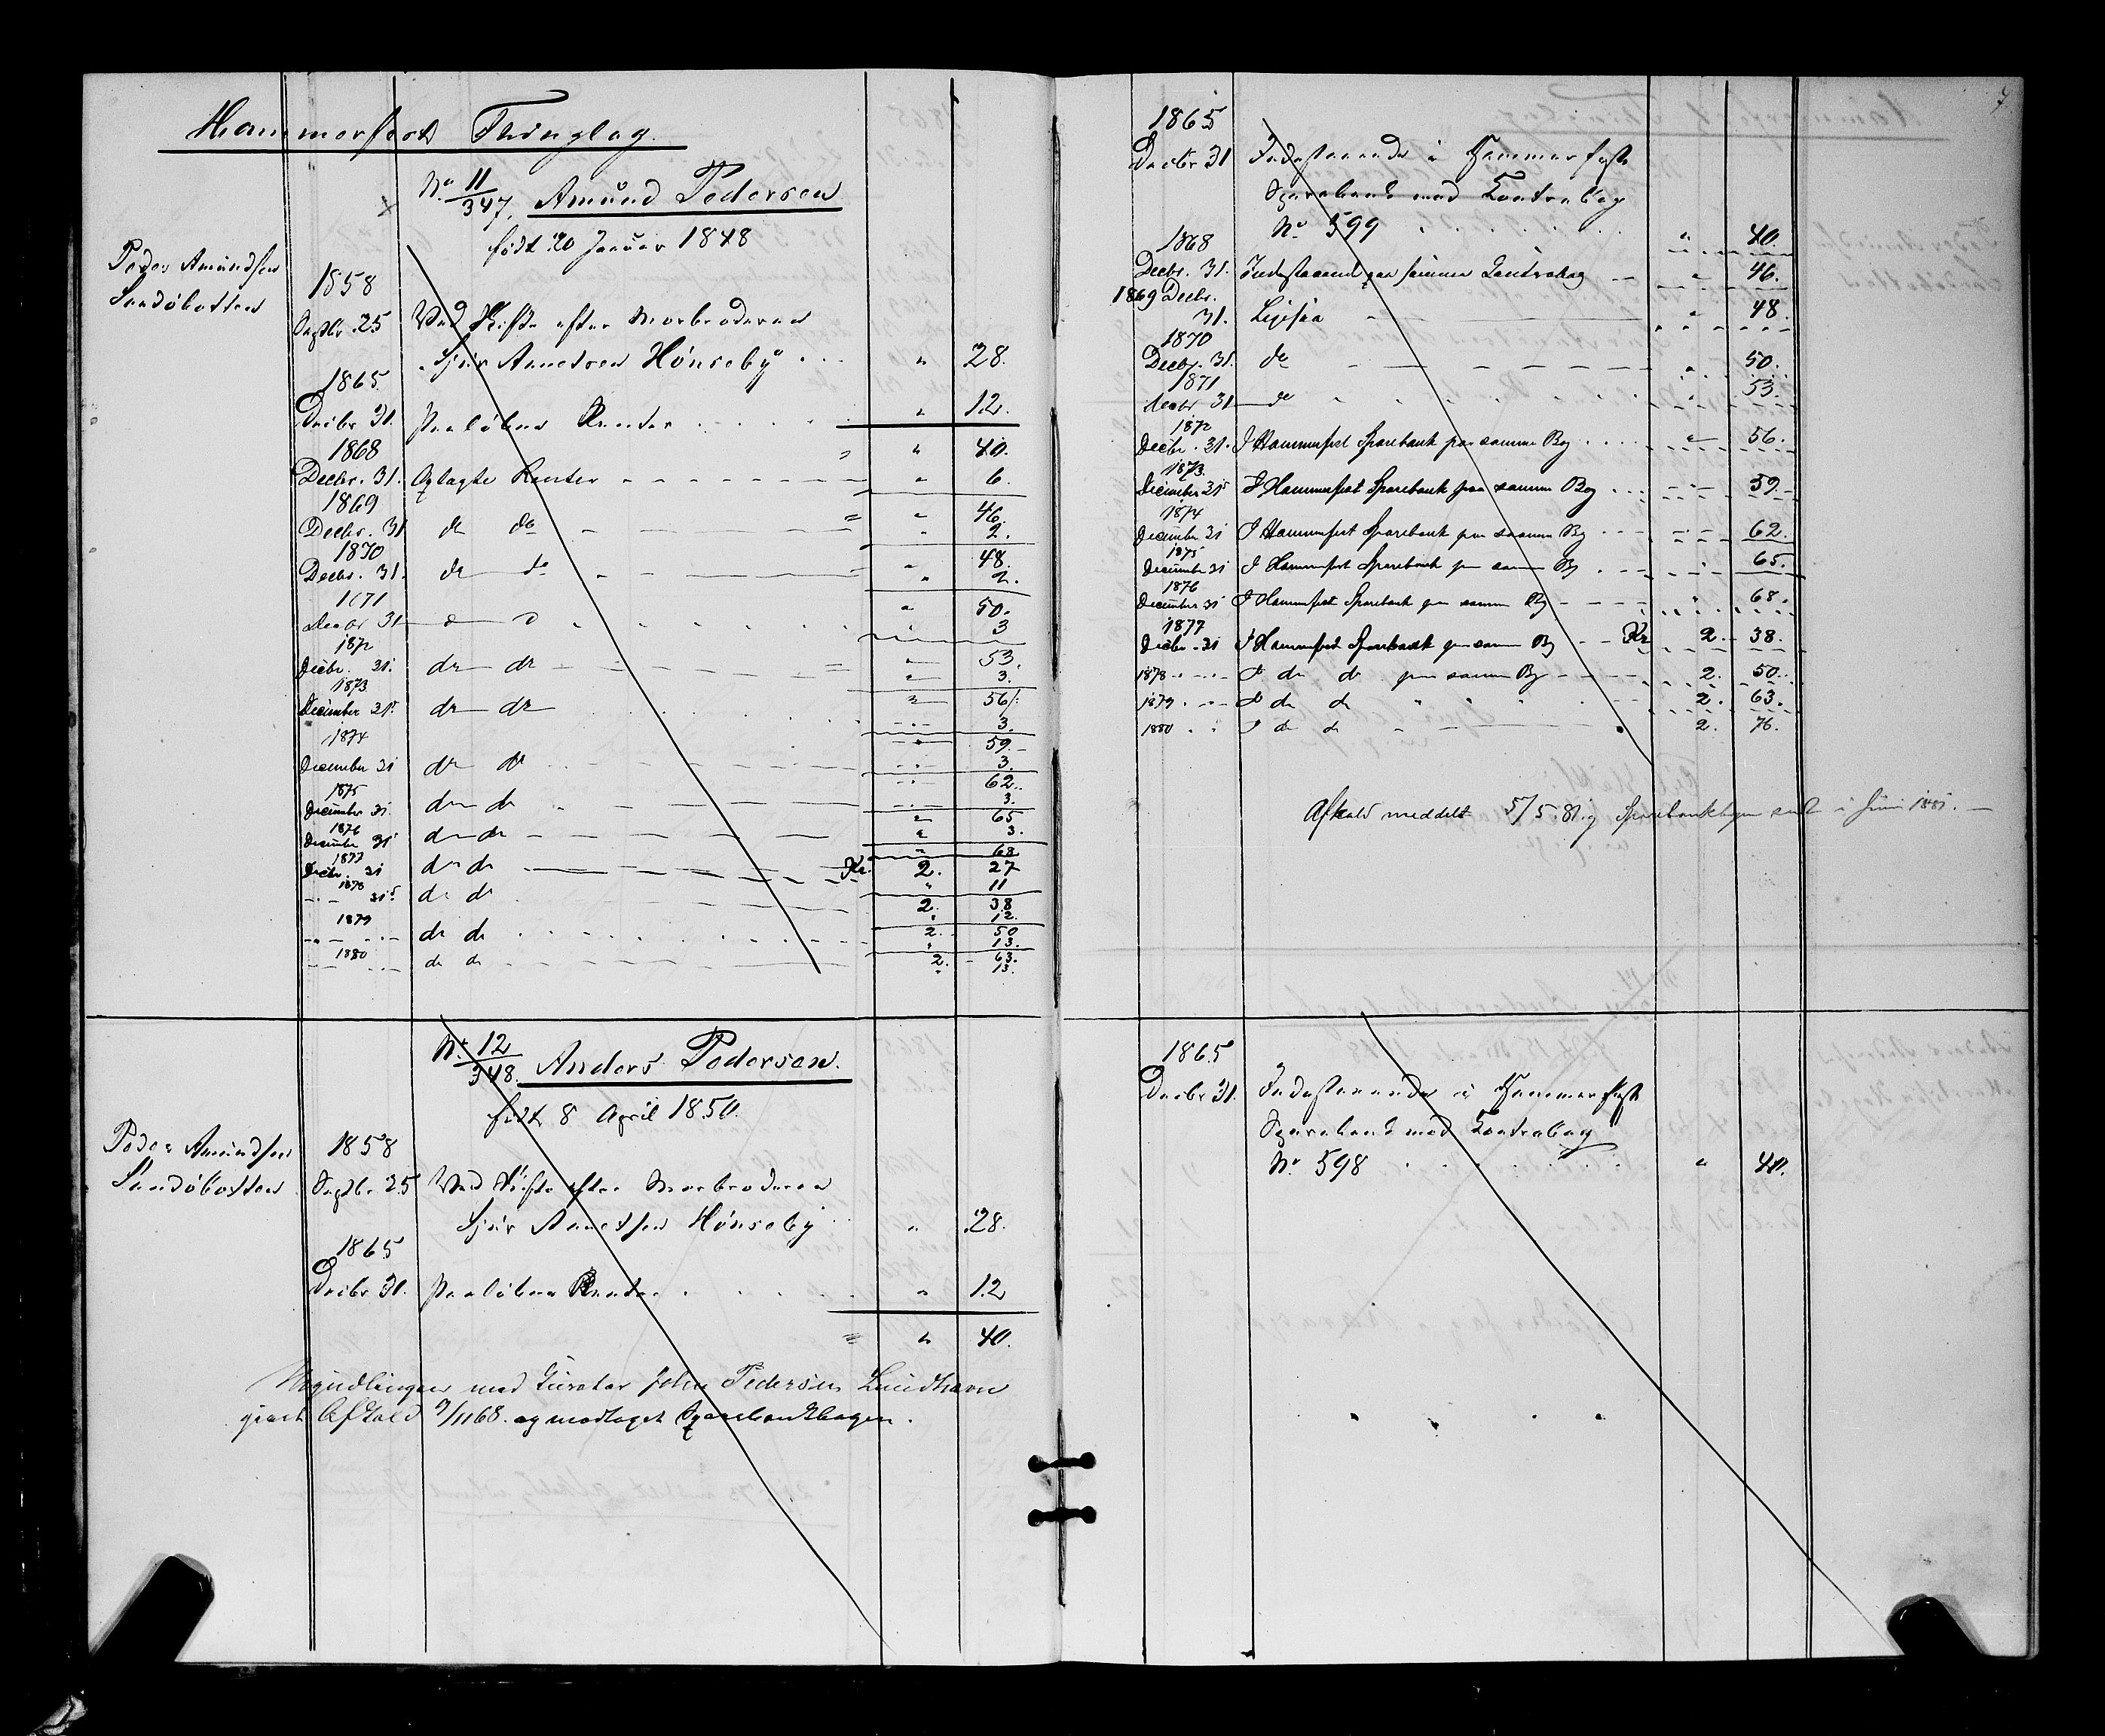 Hammerfest Thinglag.
No 11/347. Amund Pedersen
født 20 Januar 1848
Peder Amundsen
Sandøbotten
1858
Septbr. 25 Ved Skifte efter Morbroderen
Sjur Arnetsen Hønseby . . . " 28.
1865.
Decbr 31. Paaløbne Renter . . . . " 12.
= " 40.
1868
Decbr. 31. Oplagte Renter - - - - - " 6.
= " 46.
1869
Decbr. 31 do do - - - " 2.
" 48.
1870
Decbr. 31. do do - - - " 2.
" 50.
1871
Decbr 31 do do . . . . " 3
" 53.
1872
Decbr. 31. do do - - - " 3.
" 56.
1873
December 31. do do . . . " 3.
" 59.
1874
December 31 do do - - - " 3.
" 62.
1875
December 31. do do - - - " 3.
" 65
1876
December 31 do do - - - " 3.
" 68
Kr. 2. 27
1877
Decbr. 31 do do - - - " 11
2. 38
1878
" 31. do do - - - " 12.
2. 50
1879
do do . . . . " 13.
2. 63.
1880
do do - - - " 13.
No 12/348. Anders Pedersen.
født 8 April 1850.
Peder Amundsen
Sandøbotten
1858
Septbr 25 Ved Skifte efter Morbroderen
Sjur Arnetsen Hønseby . . " 28.
1865
Decbr 31. Paaløbne Renter . . . . " 12
= " 40.
Myndlingen med Curator John Pedersen Lundhavn
givet Afkald 9/11 68. og modtaget Sparebankbogen.
7
1865
Decbr 31 Indestaaende i Hammerfest
Sparebank med Contrabog
No 599 . . . . . " 40.
1868
Decbr. 31. Indestaaende paa samme Contrabog - " 46.
1869 Decbr.
31. Ligesaa - - " 48.
1870
Decbr. 31. do - - - - " 50.
1871
Decbr 31 do " " " " 53.
1872
Decbr. 31. I Hammerfest Sparebank paa samme Bog . . . . " 56.
1873.
December 31 I Hammerfest Sparebank paa samme Bog . . . " 59.
1874
December 31 I Hammerfest Sparebank paa samme Bog . . . " 62.
1875
December 31 I Hammerfest Sparebank paa samme Bog . . . " 65.
1876
December 31 I Hammerfest Sparebank paa samme Bog - - - " 68.
1877
Decbr. 31 I Hammerfest Sparebank paa samme Bog - - Kr 2. 38.
1878 I do do paa samme Bog - - - 2. 50.
1879 I do do " " " 2. 63.
1880 I do do - - - 2. 76.
Afkald meddelt 5/5. 81. og Sparebankbogen sendt i Juni 1881. -
1865
Decbr 31. Indestaaende i Hammerfest
Sparebank med Contrabog
No 598 . . . . . . " 40.